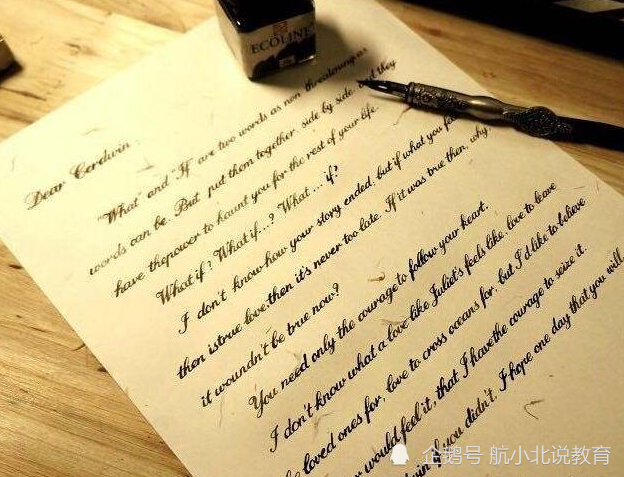 ECOLINE
Dear Cerdwin
"What" and "If" are two words as non-threatening as
words can be. But put them together side by side and they
have thepower to haunt you for the rest of your life.
What if? What if...? What... if?
I don't know how your story ended, but if what you
then istrue love,then it's never too late. If it was true then, why
it woundn't be true now?
You need only the courage to follow your heart.
I don't know what a love like Juliet's feels like, love to leave
loved ones for, love to cross oceans for, but I'd like to believe
would feel it, that I havethe courage to seize it.
if you didn't, I hope one day that you will
企鹅号 航小北说教育